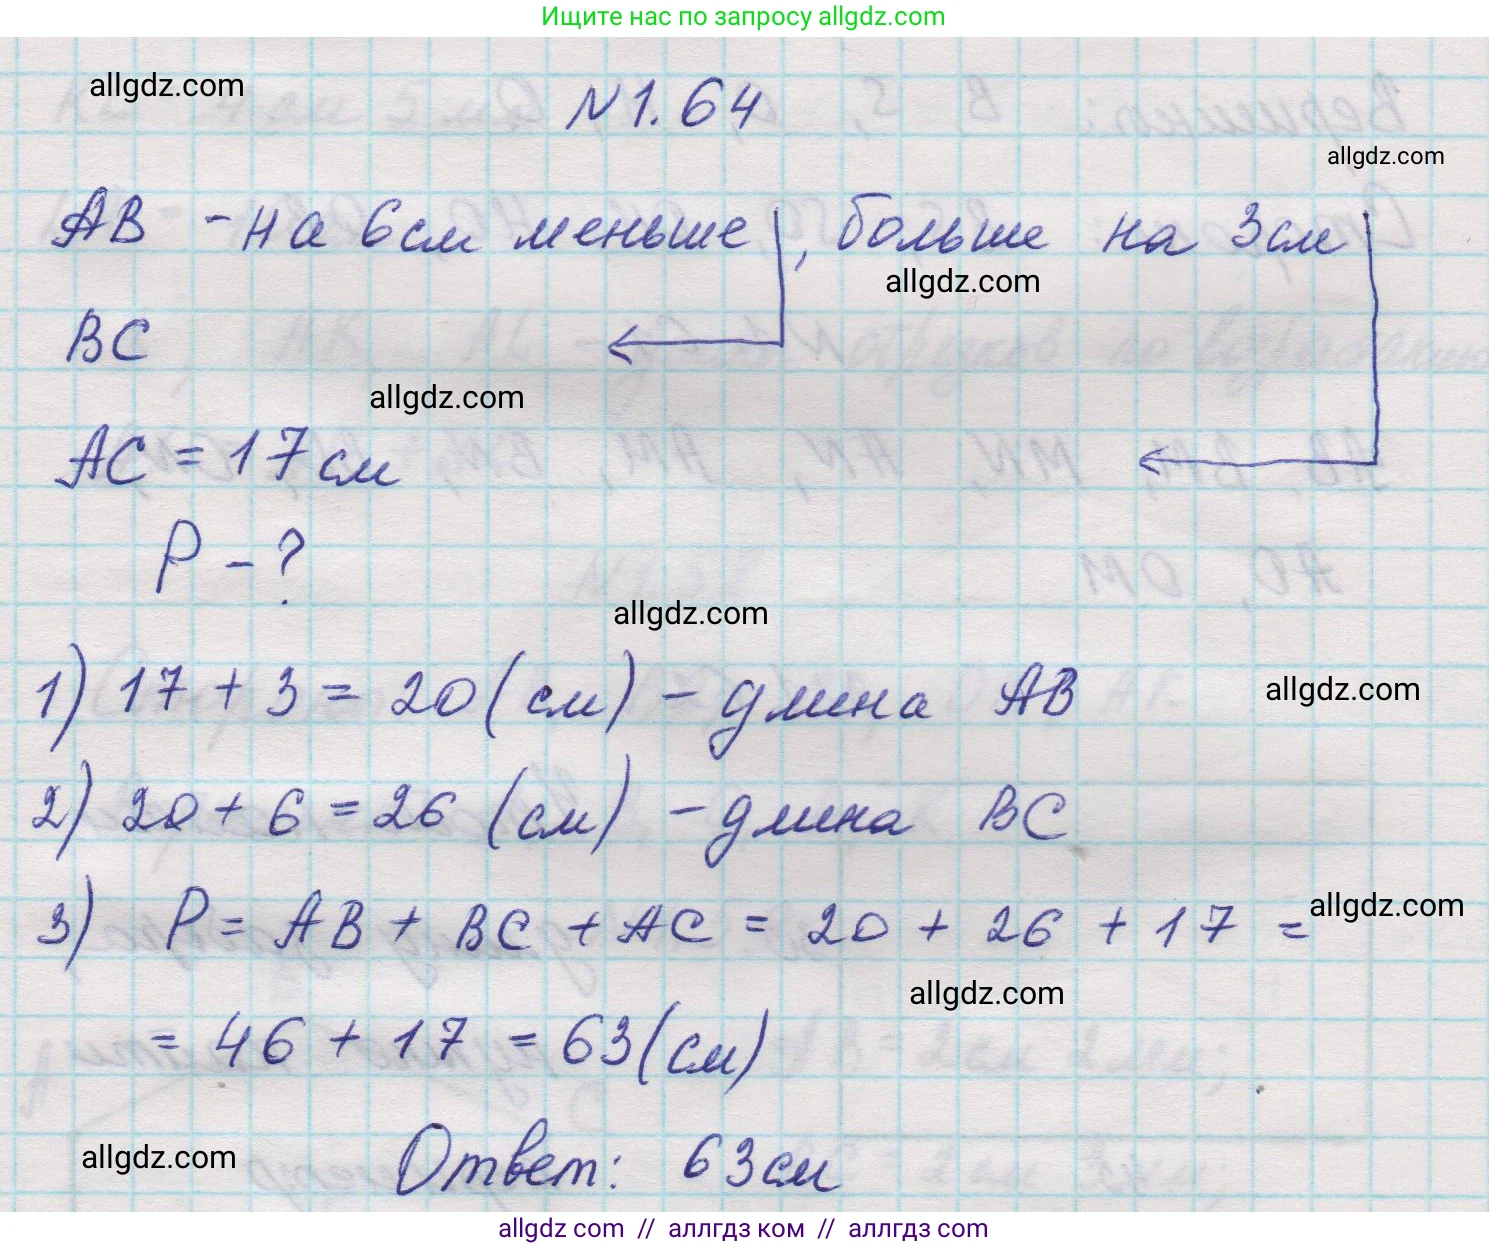 Ищите нас по запросу allgdz.com
allgdz.com
N1.64
allgdz.com
AB - на 6см меньше, больше на 3см
allgdz.com
BC
allgdz.com
AC = 17см
P - ?
allgdz.com
1) 17 + 3 = 20 (см) - длина AB
allgdz.com
2) 20 + 6 = 26 (см) - длина BC
3) P = AB + BC + AC = 20 + 26 + 17 =
allgdz.com
allgdz.com
= 46 + 17 = 63 (см)
Ответ: 63см
allgdz.com
allgdz.com // аллгдз ком // аллгдз com